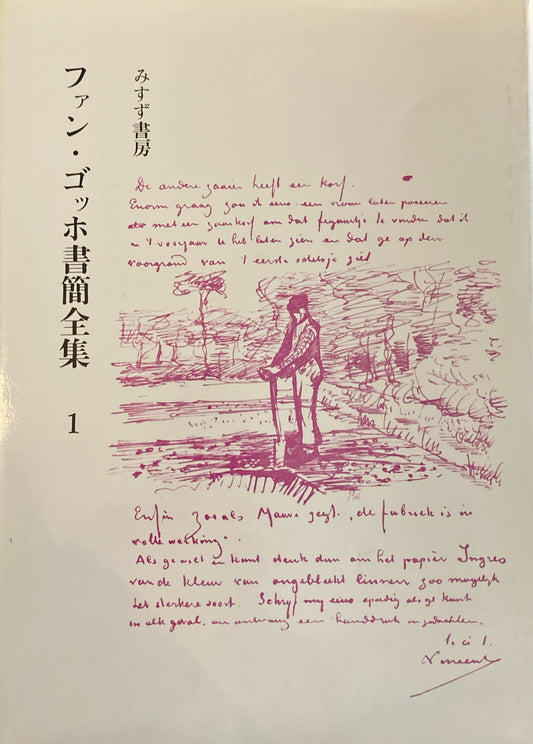 みすず書房
ファン・ゴッホ書簡全集 1
De andere zaaier heeft een korf.
Enorm graag zou ik eens een vrouw laten poseeren
met een zaaikorf om dat figuurtje te vinden dat ik
in 't voorjaar U heb laten zien en dat ge op den
voorgrond van 't eerste schetsje ziet
Enfin zooals Mauve zegt, de fabriek is in
volle werking.
Als ge wilt en kunt denk dan om het papier Ingres
van de kleur van ongebleekt linnen zoo mogelijk
het sterkere soort. Schrijf my eens spoedig als ge kunt
in elk geval, en ontvang een handdruk in gedachten.
Vincent